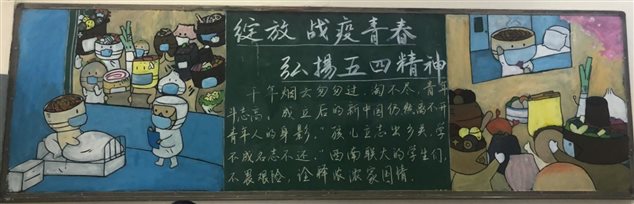 绽放战疫青春
弘揚五四精神
千年烟云匆匆过，淘不尽，青年
斗志高，成立后的新中国仍然离不开
青年人的身影，“孩儿立志出乡关，学
不成名志不还。”西南联大的学生们，
不畏艰险，诠释浓浓家国情.